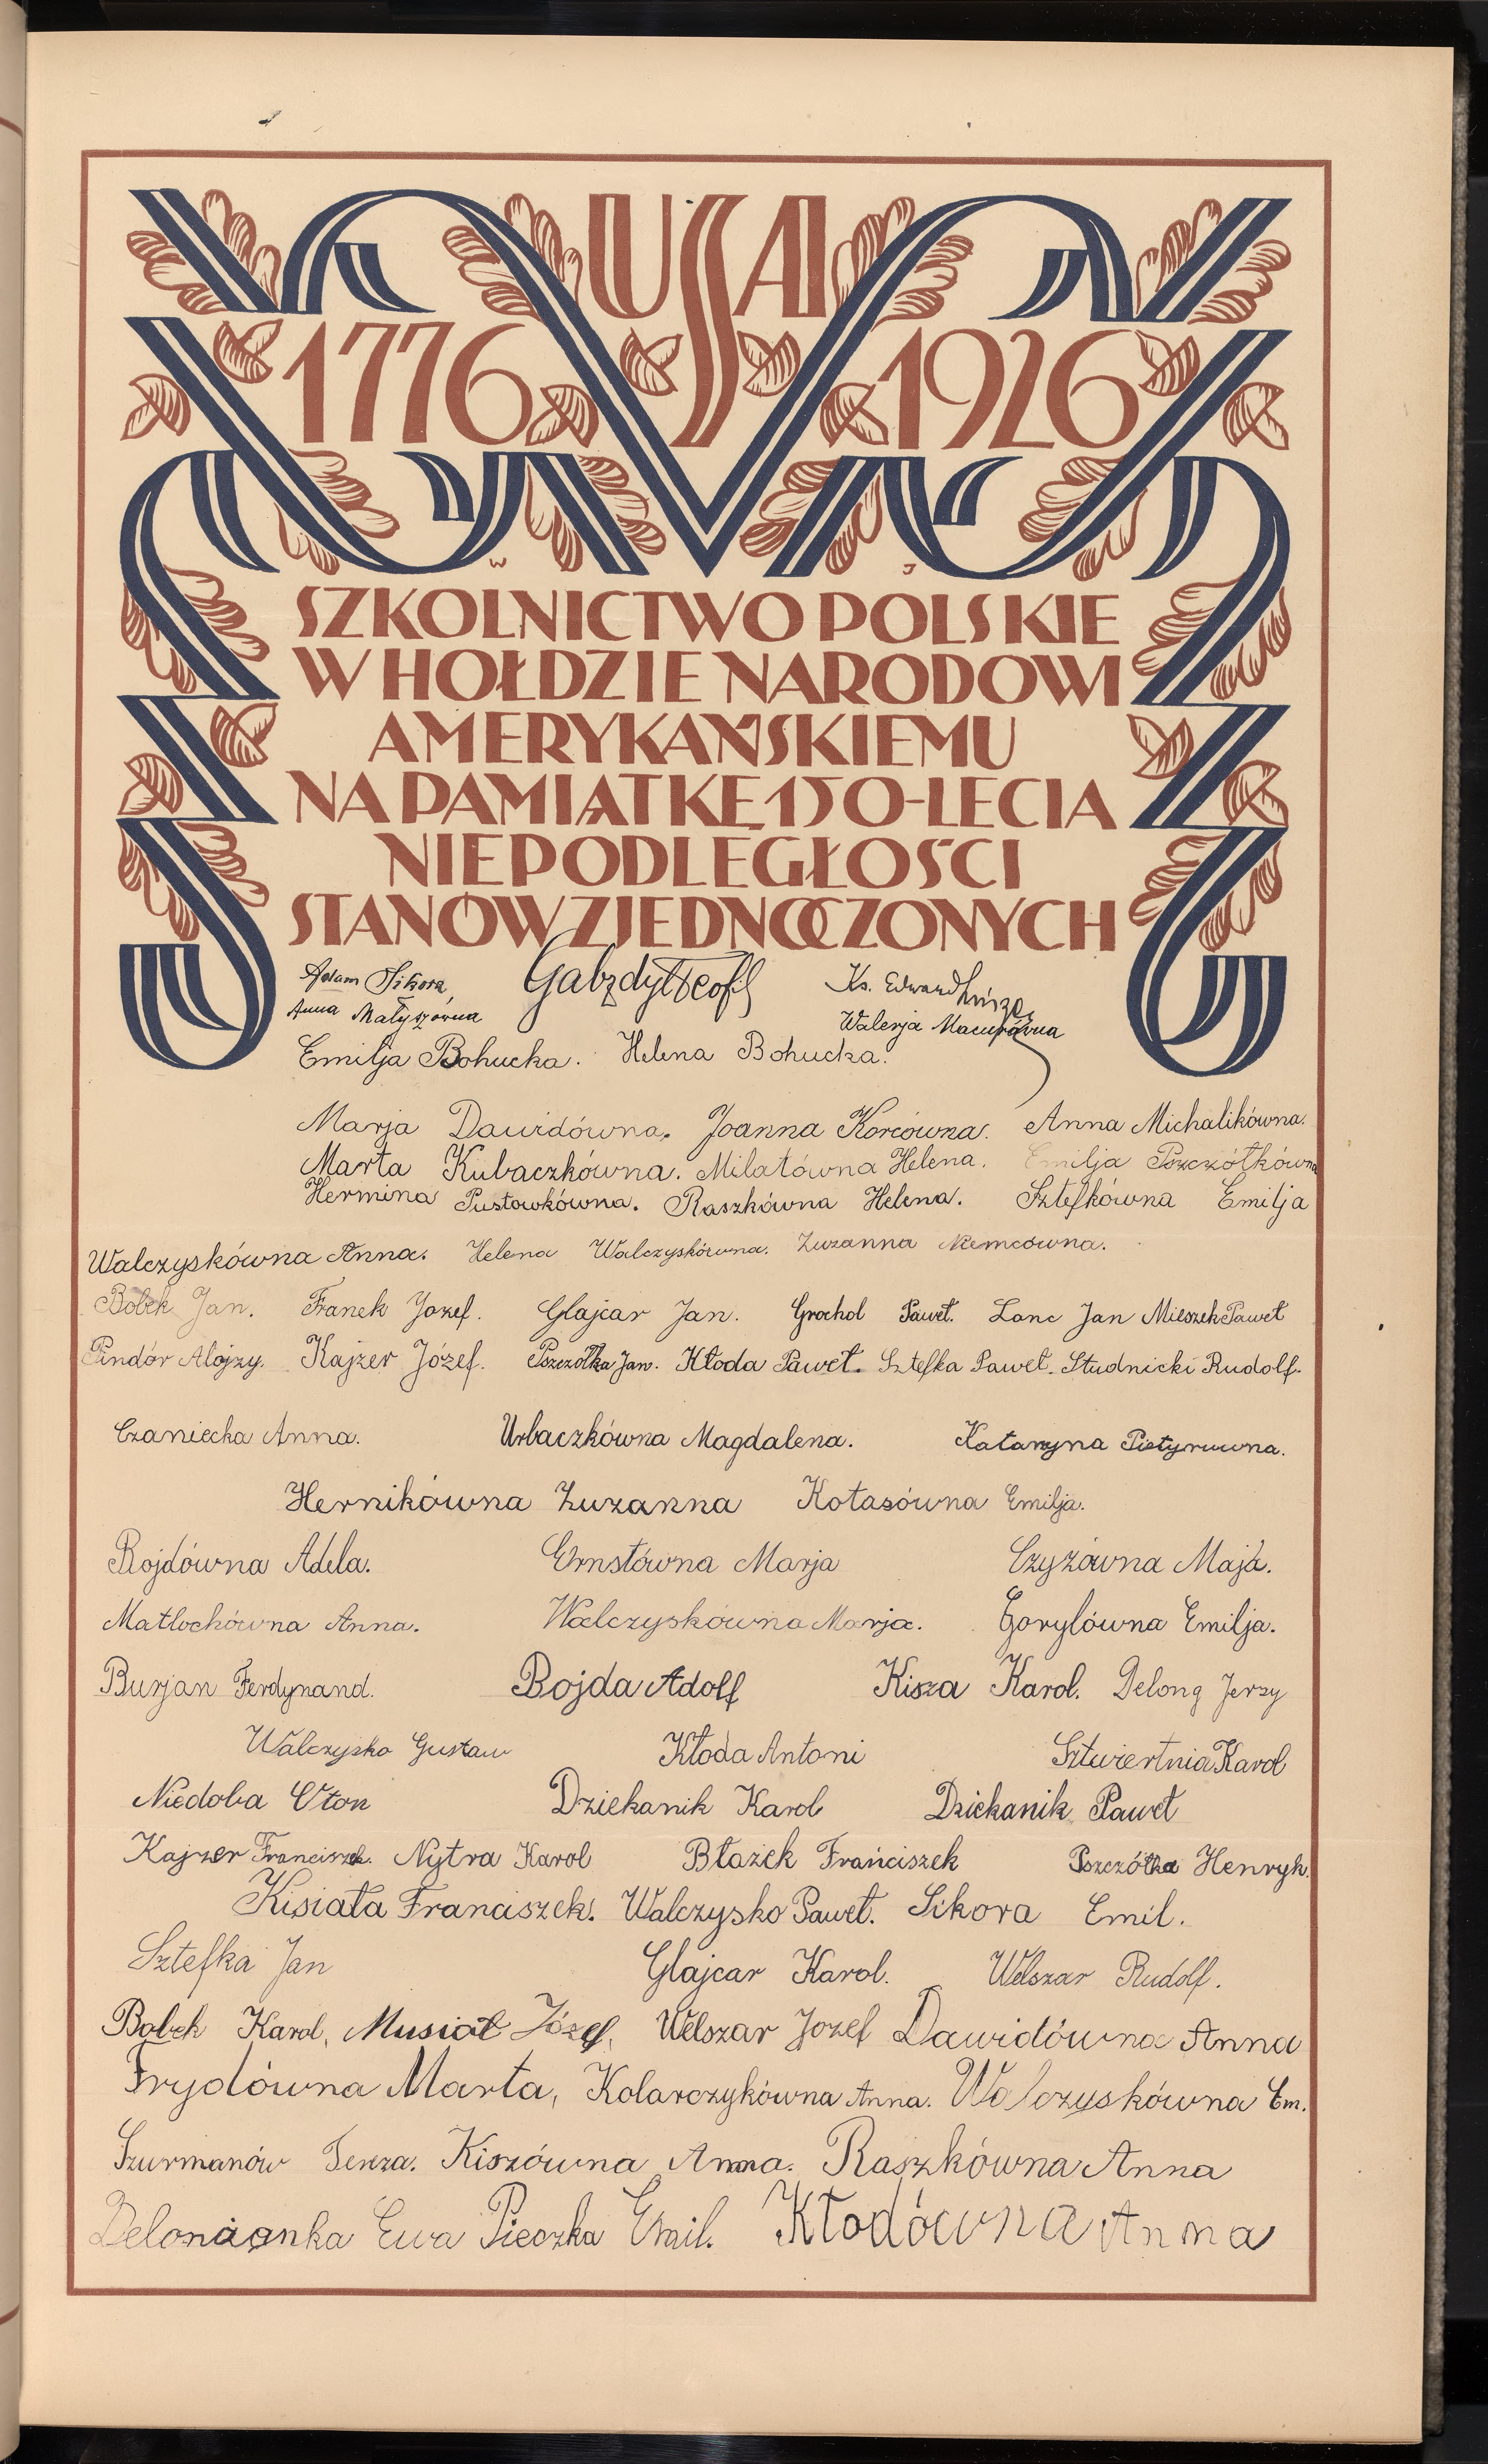 USA
1776 1926
W J
SZKOLNICTWO POLSKIE
W HOŁDZIE NARODOWI
AMERYKAŃSKIEMU
NA PAMIĄTKĘ 150-LECIA
NIEPODLEGŁOŚCI
STANÓW ZJEDNOCZONYCH
Adam Sikora Gabzdyl Teofil Ks. Edward
Anna Małyszówna Walerja
Emilja Bohucka. Helena Bohucka.
Marja Dawidówna. Joanna Korcówna. Anna Michalikówna.
Marta Kubaczkówna. Milatówna Helena. Emilja Pszczółkówna
Hermina Pustowkówna. Raszkówna Helena. Sztefkówna Emilja
Walczyskówna Anna. Helena Walczyskówna. Zuzanna Niemcówna.
Bobek Jan. Franek Jozef. Glajcar Jan. Grochol Paweł. Lanc Jan Mieszek Paweł
Pindór Alojzy. Kajzer Józef. Pszczółka Jan. Kłoda Paweł. Sztefka Paweł. Studnicki Rudolf.
Czaniecka Anna. Urbaczkówna Magdalena. Katarzyna
Hernikówna Zuzanna Kotasówna Emilja.
Bojdówna Adela. Ernstówna Marja Czyżówna Maja.
Matlochówna Anna. Walczyskówna Marja. Gorylówna Emilja.
Burjan Ferdynand. Bojda Adolf Kisza Karol. Delong Jerzy
Walczysko Gustaw Kłoda Antoni Sztwiertnia Karol
Niedoba Oton Dziekanik Karol Dziekanik Paweł
Kajzer Franciszek. Nytra Karol Błażek Franciszek Pszczółka Henryk.
Kisiała Franciszek. Walczysko Paweł. Sikora Emil.
Sztefka Jan Glajcar Karol. Welszar Rudolf.
Bobek Karol, Musioł Józef, Welszar Jozef Dawidówna Anna
Frydówna Marta, Kolarczykówna Anna. Walczyskówna Em.
Szurmanów Tereza. Kiszówna Anna. Raszkówna Anna
Delonżanka Ewa Pieczka Emil. Kłodówna Anna